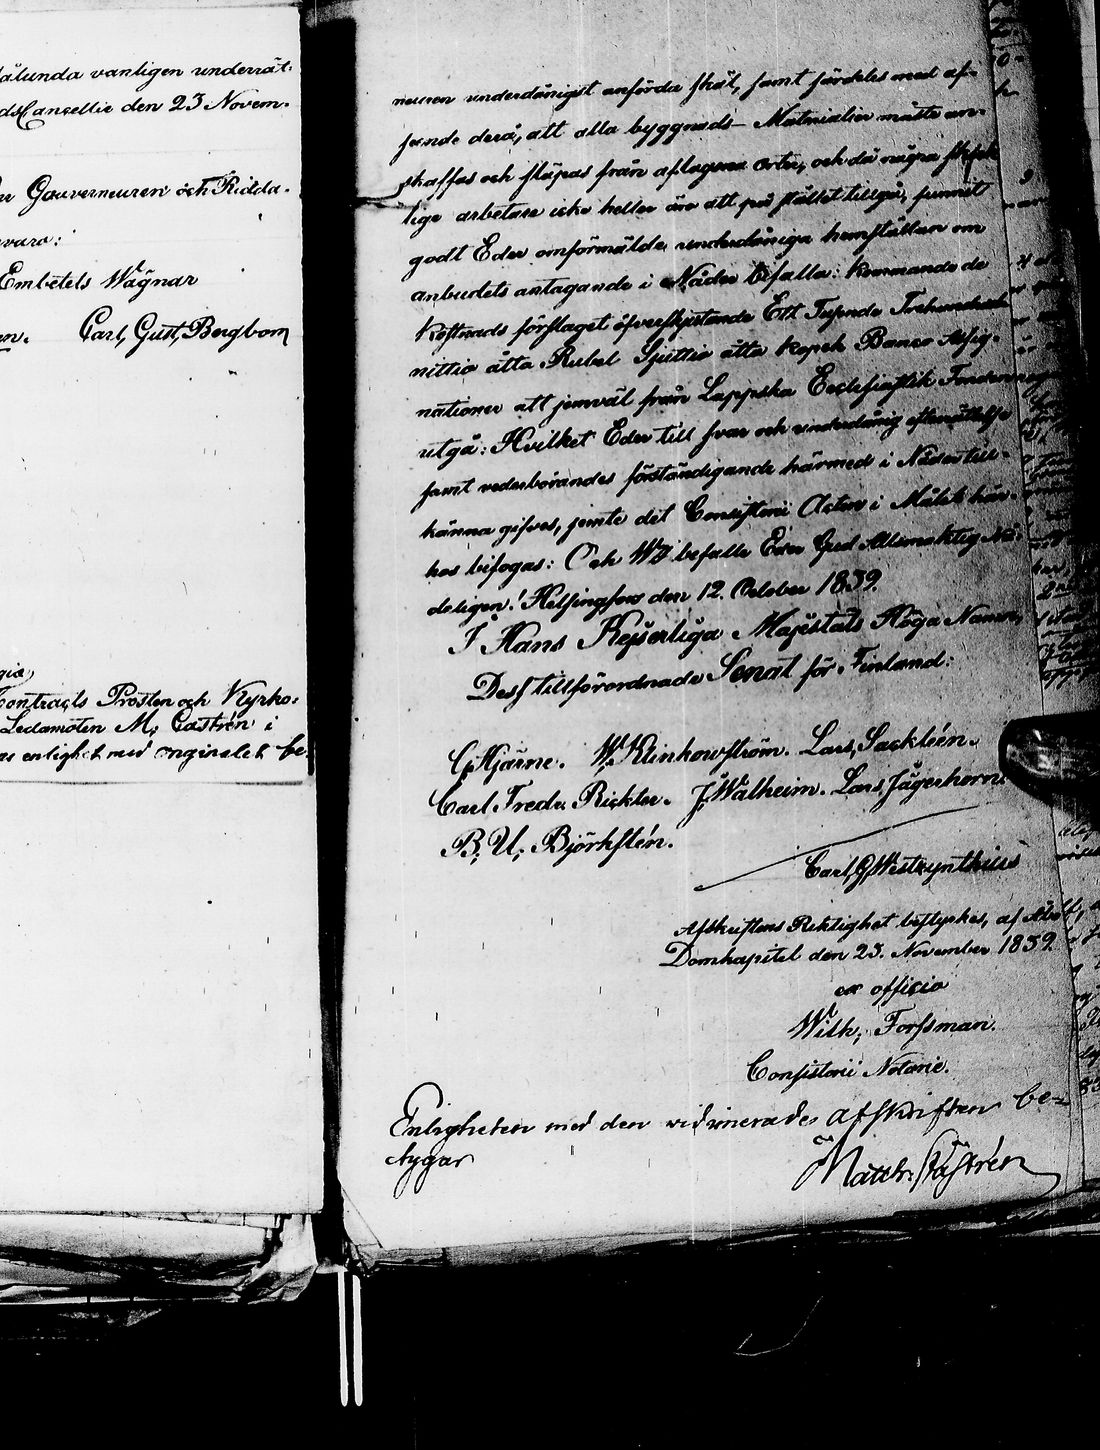 sålunda vanligen underrät-
Cancellie den 23 Novem-
Gouverneuren och Ridda-
svaro:
Embetets Wägnar
Carl, Gust, Bergbom
Contracts Prosten och Kyrko-
Ledamöten M; Castrén i
enlighet med originalet be-
neuren underdånigst anförda skäl, samt färdeles med af-
seende derå, att alla byggnads- Materialier måste an-
skaffas och släpas från aflägsna orter, och då några skick-
lige arbetare icke heller äro att på stället tillgå, funnit
godt Eder omförmälde underdåniga hemställan om
anbudets antagande i Nåder bifalla: kommande de
Kostnads förslaget öfverskjutande Ett Tusende Trehundrade
nittio åtta Rubel Sjuttio åtta kopek Banco Assig-
nationer att jemväl från Lappska Ecclesiastik Fonden
utgå: Hvilket Eder till svar och underdånig efterrättelse
samt vederbörandes förständigande härmed i Nåder till-
känna gifves, jemte det Consistorii Acten i Målet här-
hos bifogas: Och Wi befalle Eder Gud Allsmäktig Nå-
deligen! Helsingfors den 12. October 1839.
I Hans Kejserliga Majestäts Höga Namn,
Dess tillförordnade Senat för Finland:
G, Hjärne. W, Klinkowström. Lars, Sacklén.
Carl Fredr. Richter. J, Walheim. Lars, Jägerhorn.
B; U; Björkstén.
Carl, G, Westzynthius
Afskriftens Riktighet bestyrkes, af Åbo
Domkapitel den 23. November 1839.
ex officio
Wilh; Forssman.
Consistorii Notarie.
Enligheten med den vidimerade afskriften be-
tygar
Matth: Castrén